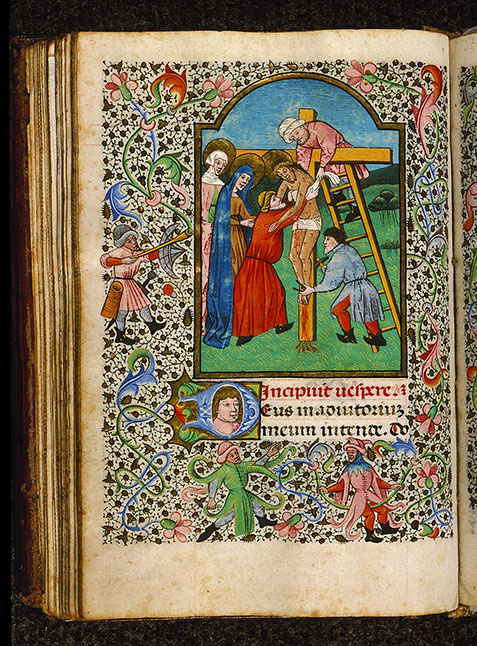 Incipiunt vespere.
Deus in adiutorium
meum intende. Do